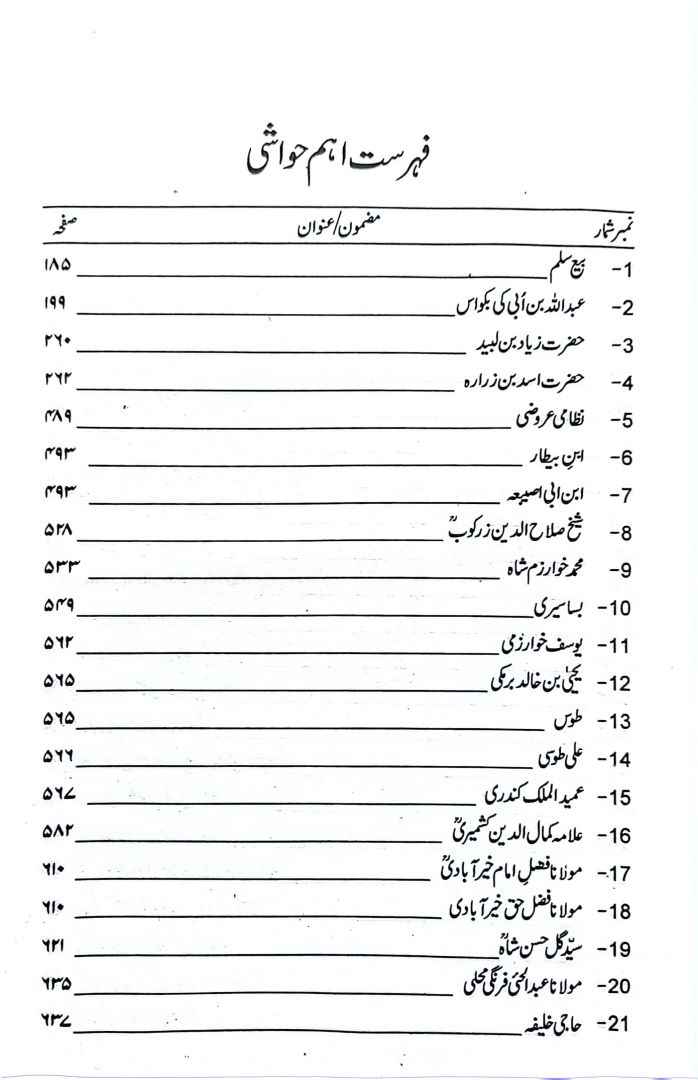 فہرست اہم حواشی
نمبر شمار مضمون/عنوان صفحہ
1- بیع سلم ۱۸۵
2- عبداللہ بن اُبی کی بکواس ۱۹۹
3- حضرت زیاد بن لبید ۲۶۰
4- حضرت اسد بن زرارہ ۲۶۲
5- نظامی عروضی ۴۸۹
6- ابنِ بیطار ۴۹۳
7- ابن ابی اصیبعہ ۴۹۳
8- شیخ صلاح الدین زرکوبؒ ۵۲۸
9- محمد خوارزم شاہ ۵۳۳
10- بساسیری ۵۴۹
11- یوسف خوارزمی ۵۶۲
12- یحییٰ بن خالد برمکی ۵۶۵
13- طوس ۵۶۵
14- علی طوسی ۵۶۶
15- عمید الملک کندری ۵۶۷
16- علامہ کمال الدین کشمیریؒ ۵۸۲
17- مولانا فضلِ امام خیرآبادیؒ ۶۱۰
18- مولانا فضل حق خیرآبادی ۶۱۰
19- سیّد گل حسن شاہؒ ۶۲۱
20- مولانا عبدالحئی فرنگی محلی ۶۳۵
21- حاجی خلیفہ ۶۳۷